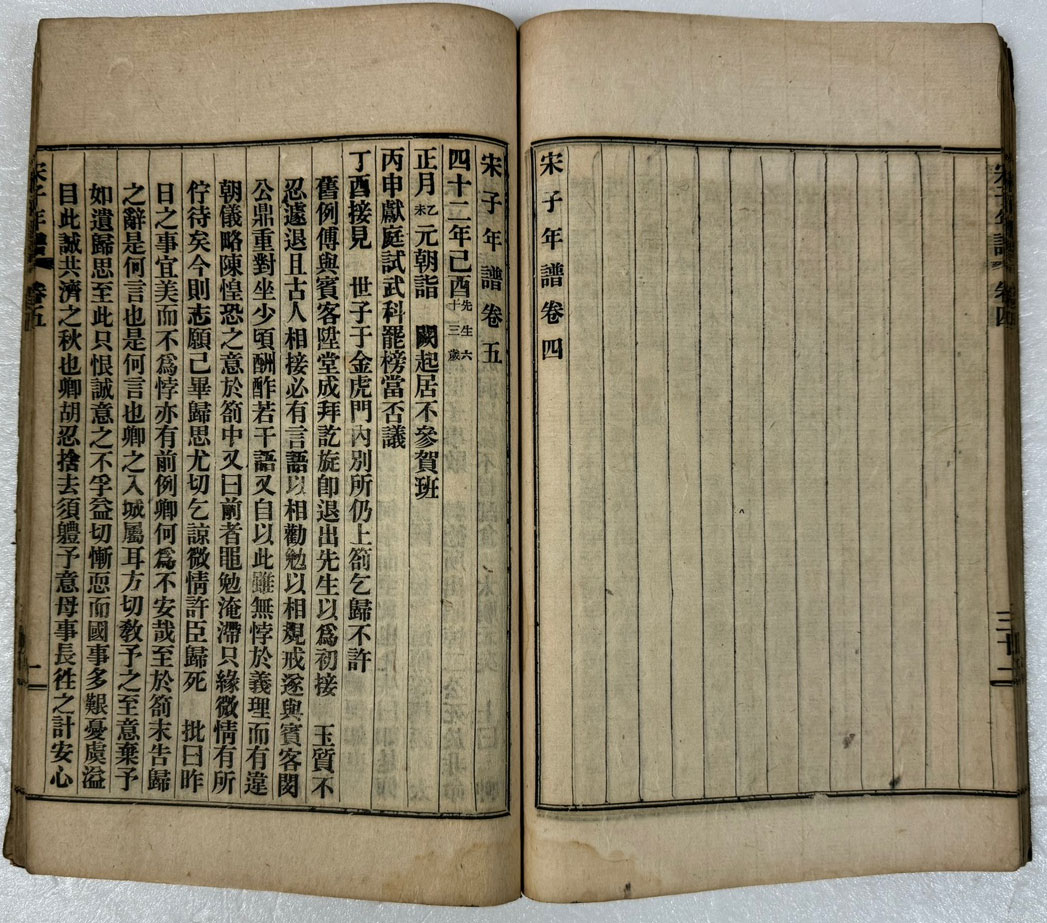 宋子年譜卷四
三十二
宋子年譜卷五
四十二年己酉先生六十三歲
正月乙未元朝詣　闕起居不參賀班
丙申獻庭試武科罷榜當否議
丁酉接見　世子于金虎門內別所仍上箚乞歸不許
舊例傅與賓客陞堂成拜訖旋卽退出先生以爲初接　玉質不
忍遽退且古人相接必有言語以相勸勉以相規戒遂與賓客閔
公鼎重對坐少頃酬酢若干語又自以此雖無悖於義理而有違
朝儀略陳惶恐之意於箚中又曰前者黽勉淹滯只緣微情有所
佇待矣今則志願已畢歸思尤切乞諒微情許臣歸死　批曰昨
日之事宜美而不爲悖亦有前例卿何爲不安哉至於箚末告歸
之辭是何言也是何言也卿之入城屬耳方切敎予之至意棄予
如遺歸思至此只恨誠意之不孚益切慚恧而國事多艱憂虞溢
目此誠共濟之秋也卿胡忍捨去須軆予意毋事長徃之計安心
宋子年譜
卷五
一